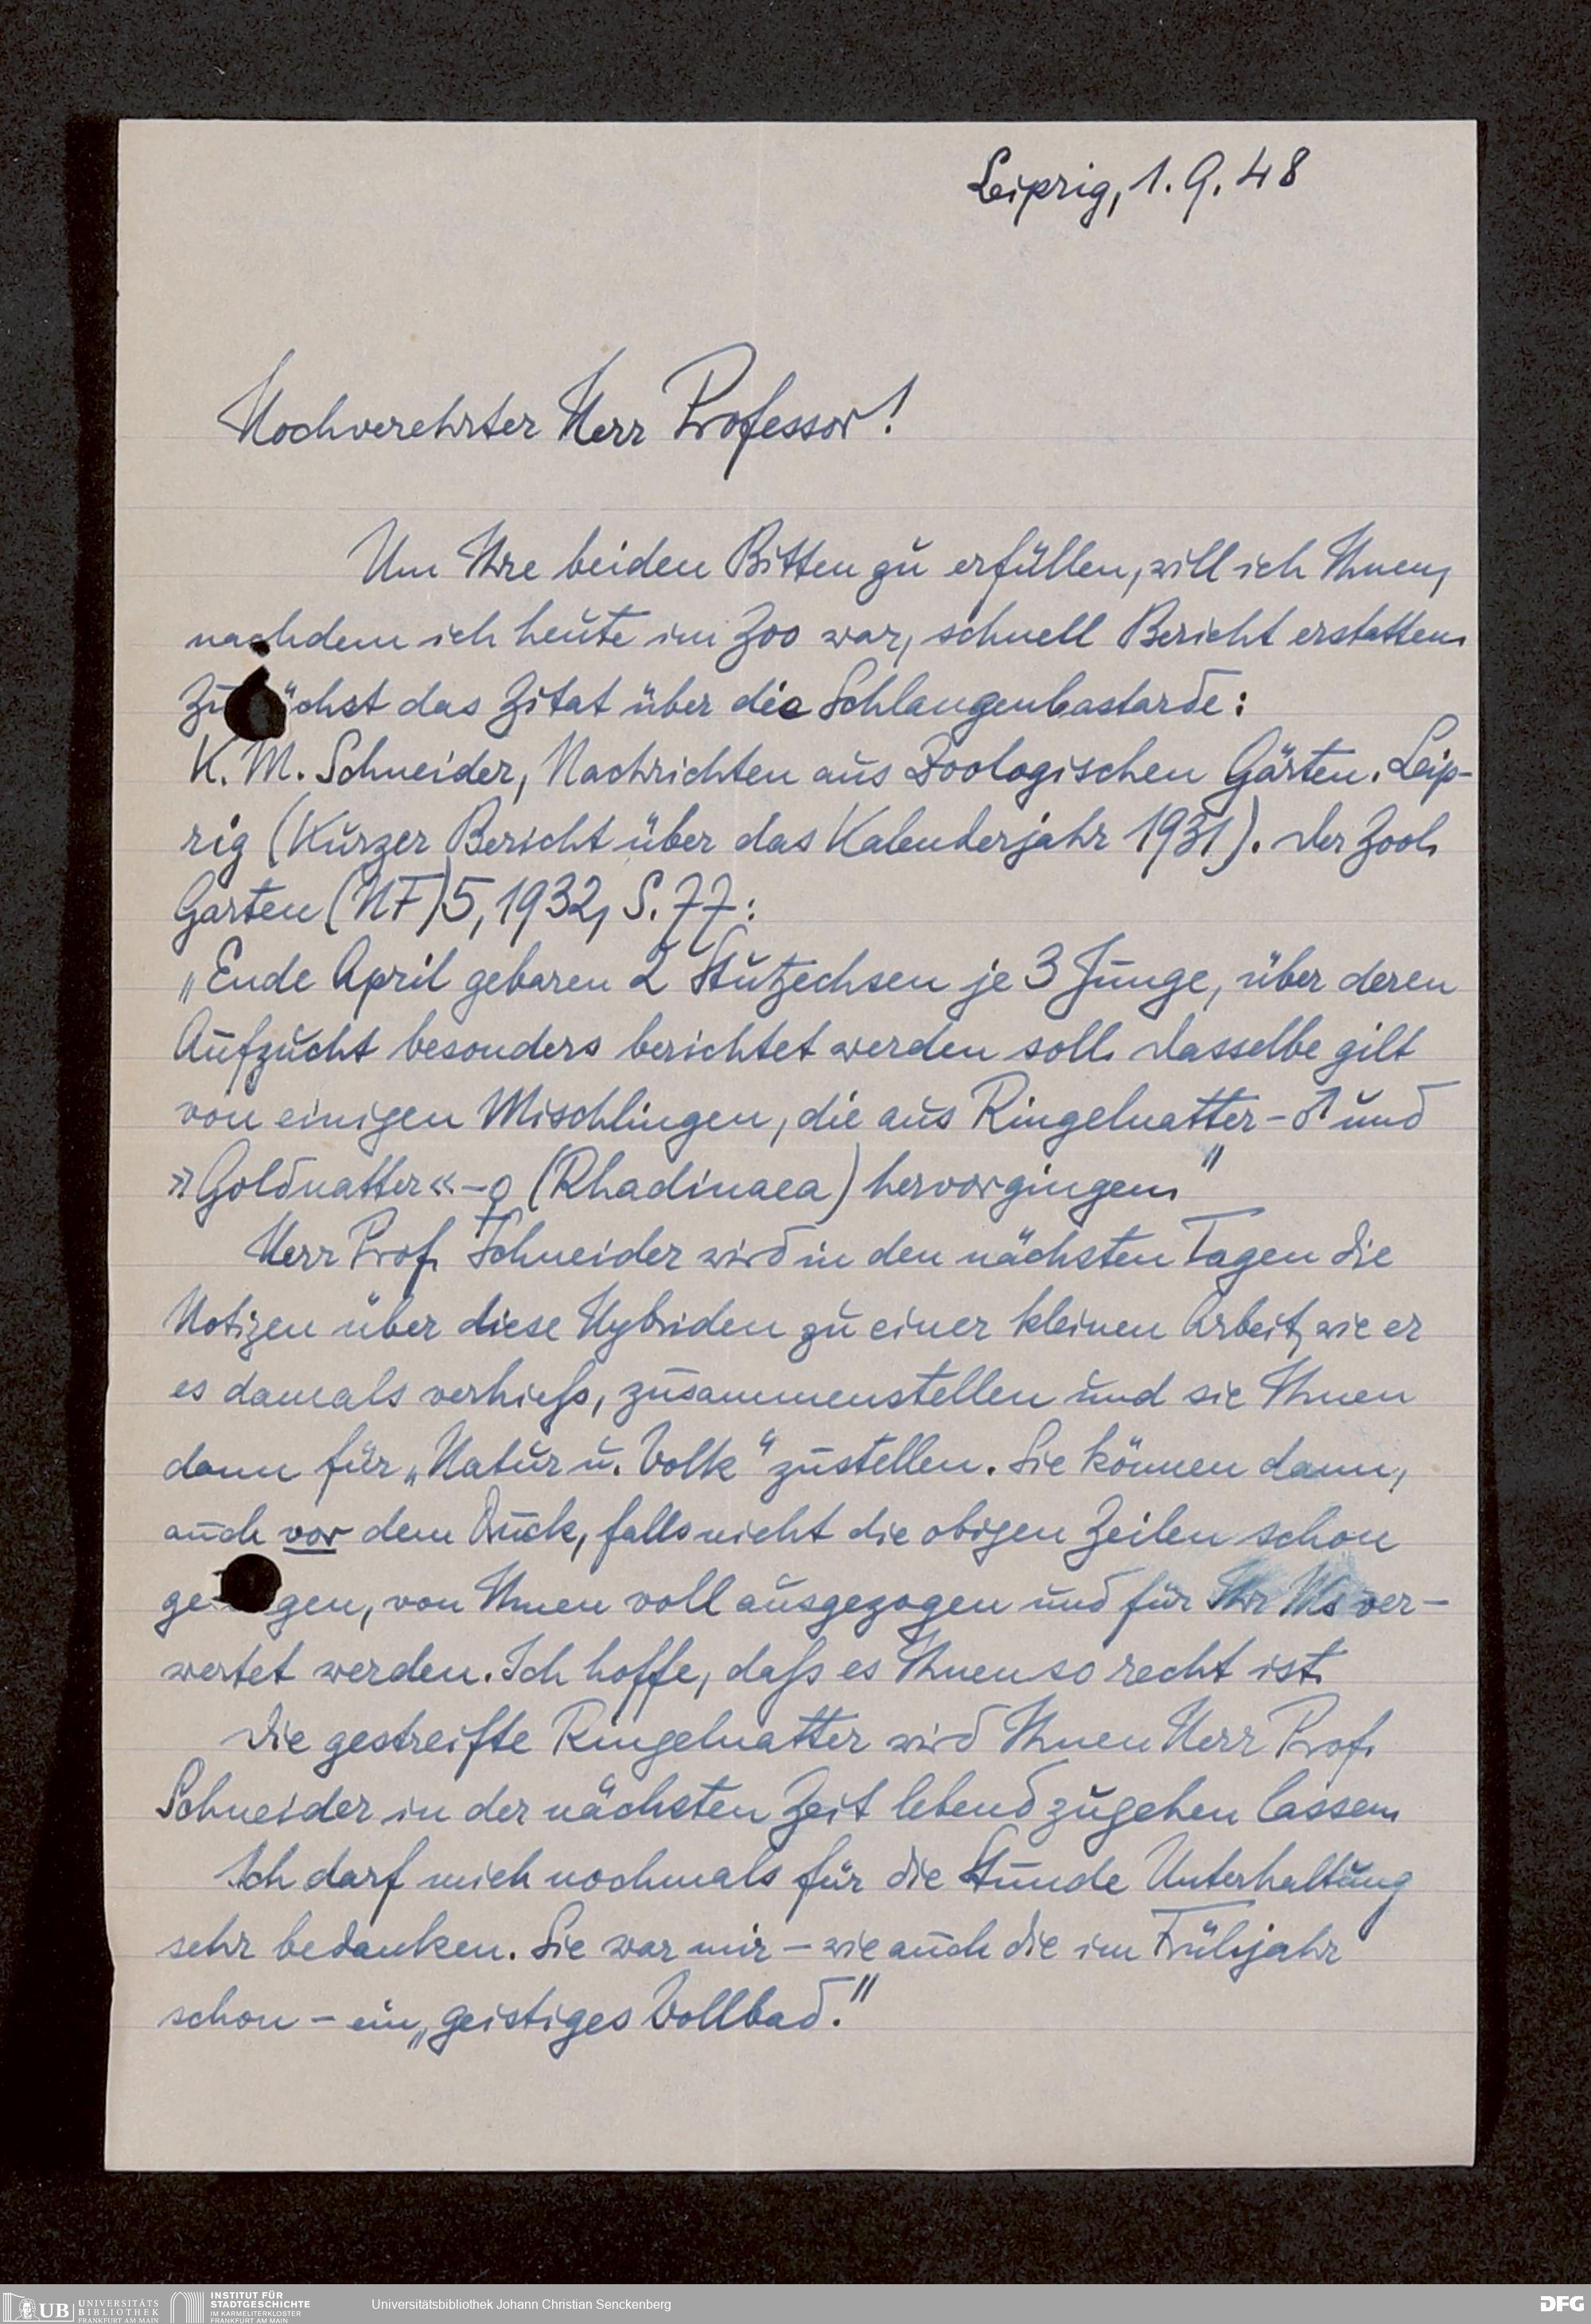 Leipzig, 1. 9. 48
Hochverehrter Herr Professor!
Um Ihre beiden Bitten zu erfüllen, will ich Ihnen,
nachdem ich heute im Zoo war, schnell Bericht erstatten.
Zu ächst das Zitat über die Schlangenbastarde:
K. M. Schneider, Nachrichten aus Zoologischen Gärten. Leip-
zig (Kurzer Bericht über das Kalenderjahr 1931). Der Zool.
Garten (NF) 5, 1932, S. 77:
„Ende April gebaren 2 Stutzechsen je 3 Junge, über deren
Aufzucht besonders berichtet werden soll. Dasselbe gilt
von einigen Mischlingen, die aus Ringelnatter-♂ und
»Goldnatter«-♀ (Rhadinaea) hervorgingen."
Herr Prof. Schneider wird in den nächsten Tagen die
Notizen über diese Hybriden zu einer kleinen Arbeit, wie er
es damals verhieß, zusammenstellen und sie Ihnen
dann für „Natur u. Volk" zustellen. Sie können dann,
auch vor dem Druck, falls nicht die obigen Zeilen schon
ge gen, von Ihnen voll ausgezogen und für Ihr Ms ver-
wertet werden. Ich hoffe, daß es Ihnen so recht ist.
Die gestreifte Ringelnatter wird Ihnen Herr Prof.
Schneider in der nächsten Zeit lebend zugehen lassen.
Ich darf mich nochmals für die Stunde Unterhaltung
sehr bedanken. Sie war mir – wie auch die im Frühjahr
schon – ein „geistiges Vollbad."
UB UNIVERSITÄTS
BIBLIOTHEK
FRANKFURT AM MAIN
INSTITUT FÜR
STADTGESCHICHTE
IM KARMELITERKLOSTER
FRANKFURT AM MAIN
Universitätsbibliothek Johann Christian Senckenberg
DFG